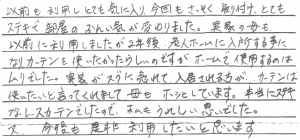 以前も利用しとても気に入り今回もさっそく取り付け、とても
ステキで部屋のふんい気が変わりました。実家の母も
以前に利用しましたが2年後、老人ホームに入所する事に
なりカーテンを使いたかったらしいのですがホームで使用するのは
ムリでした。実家がスグに売れて入居される方が、カーテンは
使いたいと言ってくれまして母もホッとしています。本当にステキ
なレースカーテンでしたので、私もうれしい思いでした。
又、今後も是非利用したいと思います